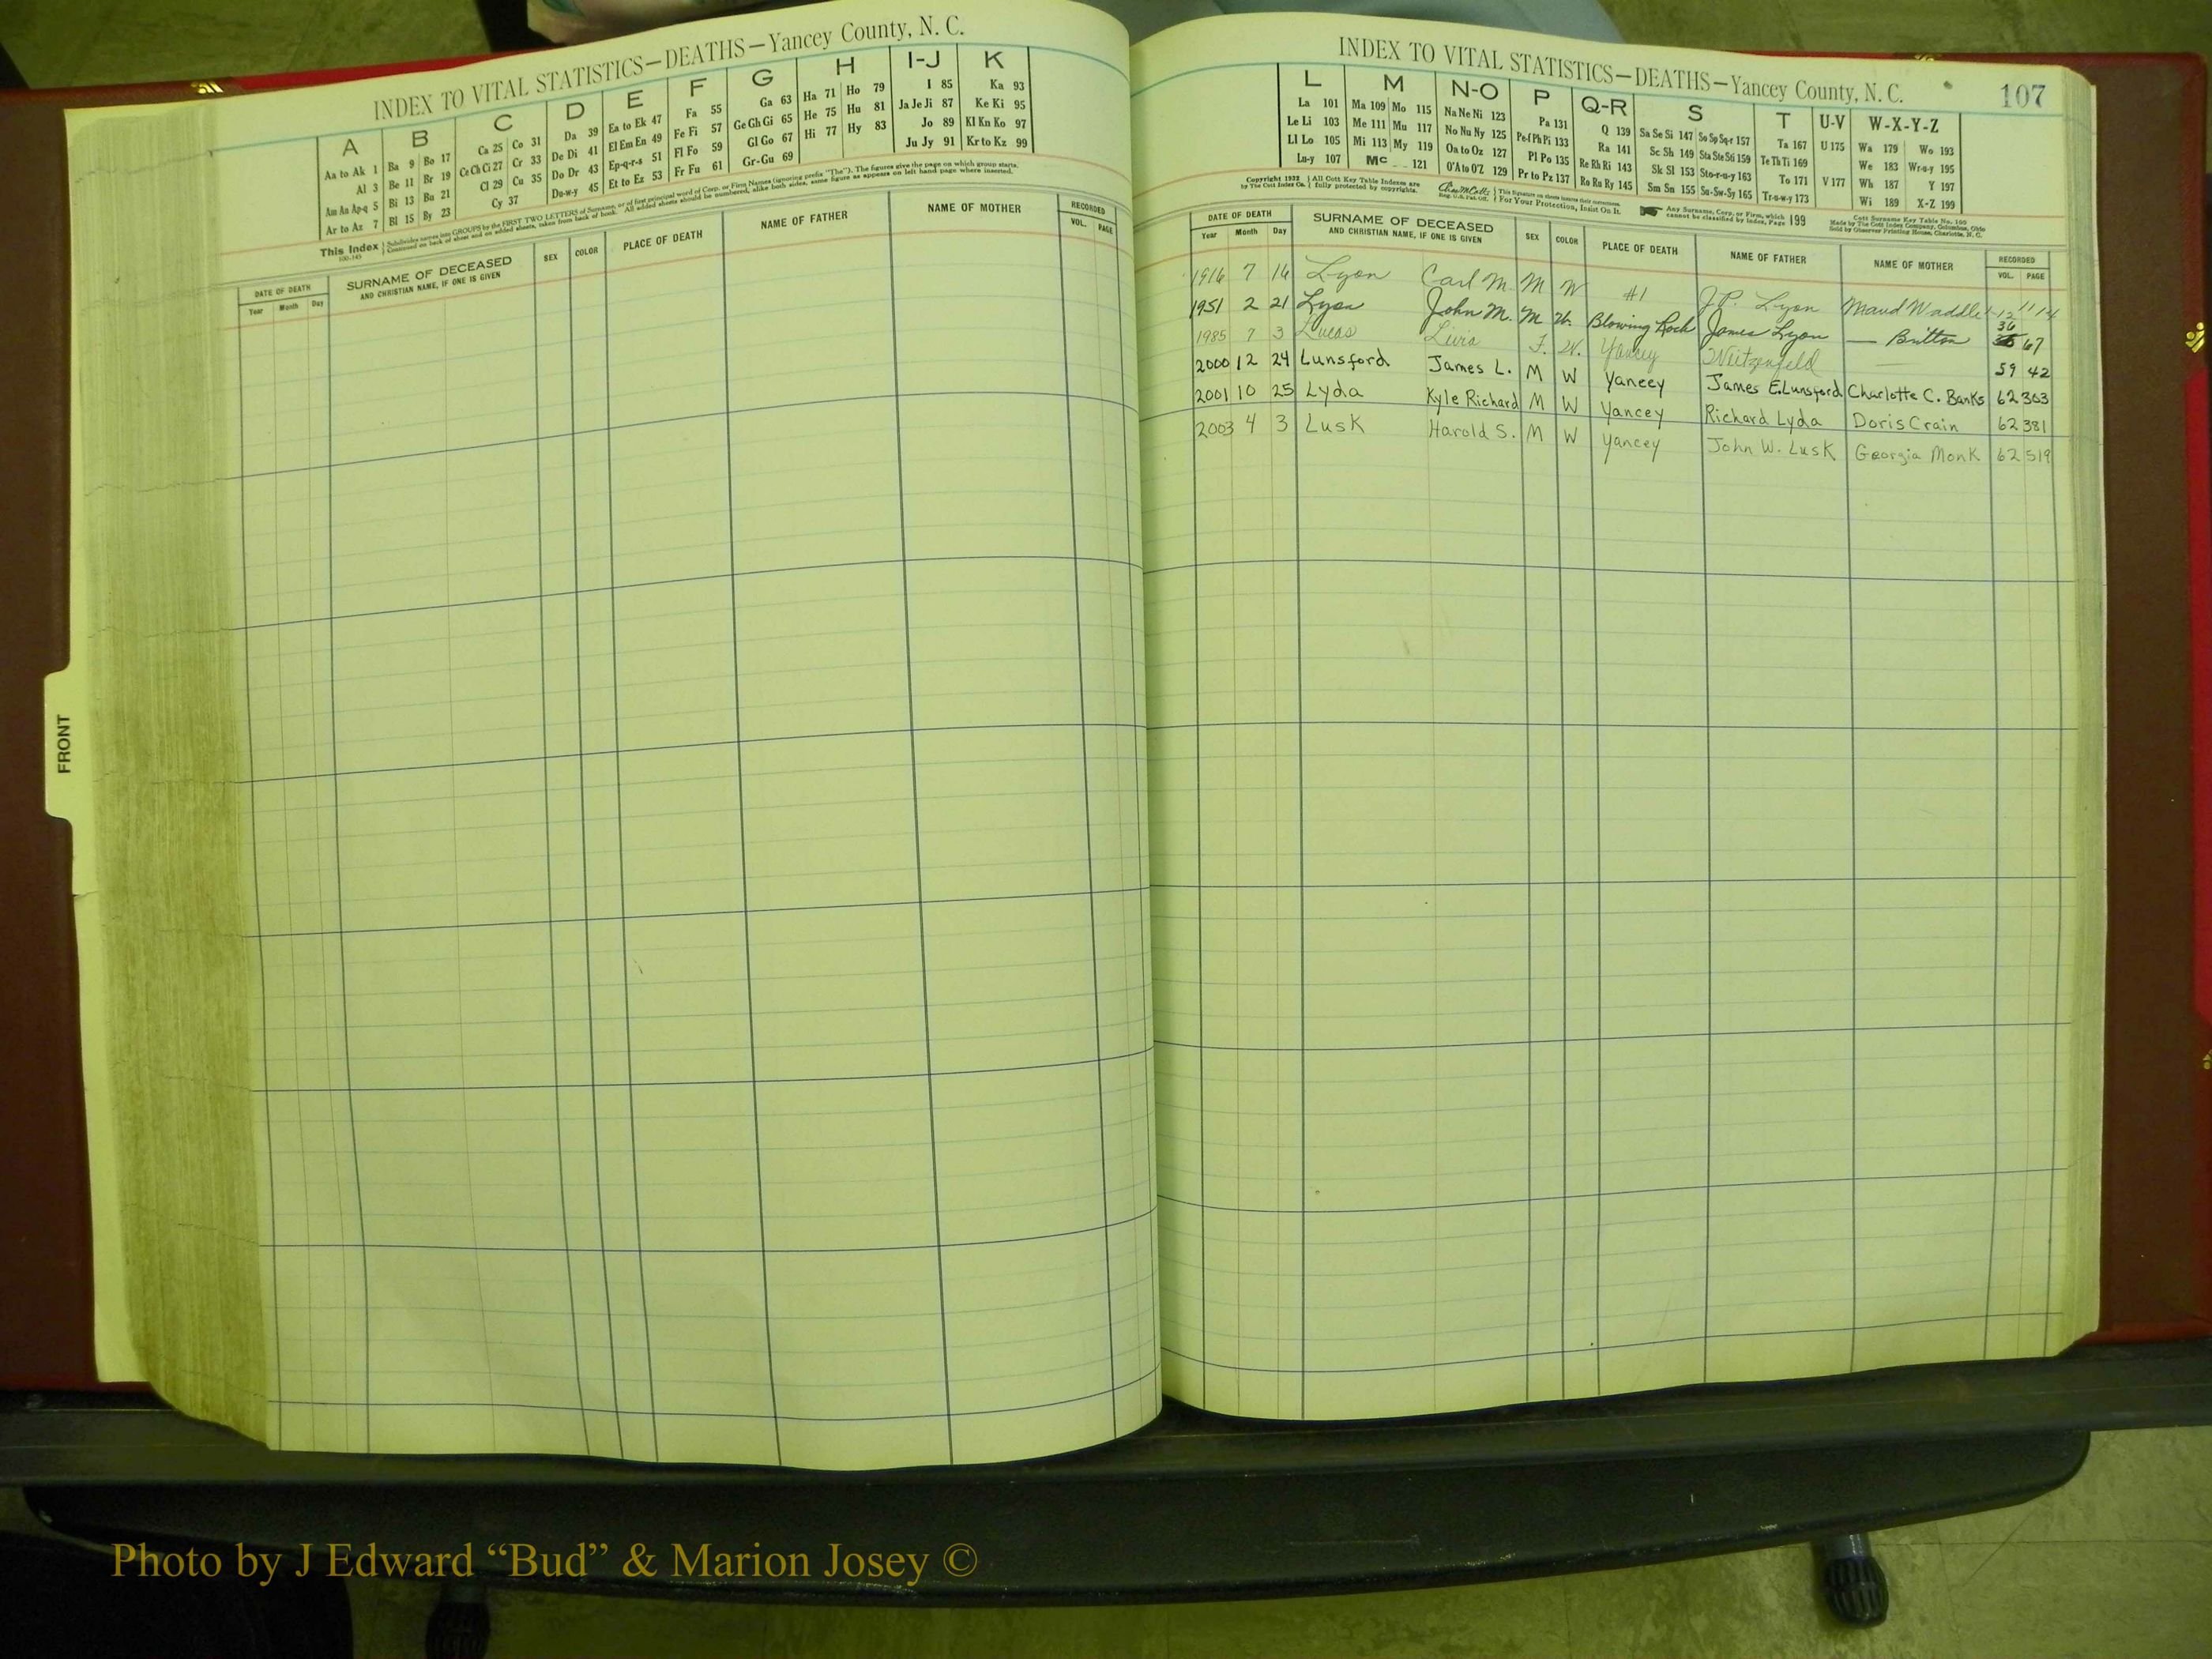 INDEX TO VITAL STATISTICS—DEATHS—Yancey County, N. C.
A B C D E F G H I-J K
Aa to Ak 1 Ba 9 Bo 17 Ca 25 Co 31 Da 39 Ea to Ek 47 Fa 55 Ga 63 Ha 71 Ho 79 I 85 Ka 93
Al 3 Be 11 Br 19 Ce Ch Ci 27 Cr 33 De Di 41 El Em En 49 Fe Fi 57 Ge Gh Gi 65 He 75 Hu 81 Ja Je Ji 87 Ke Ki 95
Am An Ap-q 5 Bi 13 Bu 21 Cl 29 Cu 35 Do Dr 43 Ep-q-r-s 51 Fl Fo 59 Gl Go 67 Hi 77 Hy 83 Jo 89 Kl Kn Ko 97
Ar to Az 7 Bl 15 By 23 Cy 37 Du-w-y 45 Et to Ez 53 Fr Fu 61 Gr-Gu 69 Ju Jy 91 Kr to Kz 99
This Index Subdivides names into GROUPS by the FIRST TWO LETTERS of Surname, or of first principal word of Corp. or Firm Names (ignoring prefix "The"). The figures give the page on which group starts.
Continued on back of sheet and on added sheets, taken from back of book. All added sheets should be numbered, alike both sides, same figure as appears on left hand page where inserted.
DATE OF DEATH SURNAME OF DECEASED SEX COLOR PLACE OF DEATH NAME OF FATHER NAME OF MOTHER RECORDED
Year Month Day AND CHRISTIAN NAME, IF ONE IS GIVEN VOL. PAGE
FRONT
INDEX TO VITAL STATISTICS—DEATHS—Yancey County, N. C. 107
L M N-O P Q-R S T U-V W-X-Y-Z
La 101 Ma 109 Mo 115 Na Ne Ni 123 Pa 131 Q 139 Sa Se Si 147 So Sp Sq-r 157 Ta 167 U 175 Wa 179 Wo 193
Le Li 103 Me 111 Mu 117 No Nu Ny 125 Pe-f Ph Pi 133 Ra 141 Sc Sh 149 Sta Ste Sti 159 Te Th Ti 169 We 183 Wr-u-y 195
Ll Lo 105 Mi 113 My 119 Oa to Oz 127 Pl Po 135 Re Rh Ri 143 Sk Sl 153 Sto-r-u-y 163 To 171 V 177 Wh 187 Y 197
Lu-y 107 Mc 121 O'A to O'Z 129 Pr to Pz 137 Ro Ru Ry 145 Sm Sn 155 Su-Sw-Sy 165 Tr-u-w-y 173 Wi 189 X-Z 199
Copyright 1932 All Cott Key Table Indexes are This Signature on sheets insures their correctness. Any Surname, Corp. or Firm, which 199 Cott Surname Key Table No. 100
by The Cott Index Co. fully protected by copyrights. Reg. U.S. Pat. Off. For Your Protection, Insist On It. cannot be classified by Index, Page Made by The Cott Index Company, Columbus, Ohio
Sold by Observer Printing House, Charlotte, N. C.
DATE OF DEATH SURNAME OF DECEASED SEX COLOR PLACE OF DEATH NAME OF FATHER NAME OF MOTHER RECORDED
Year Month Day AND CHRISTIAN NAME, IF ONE IS GIVEN VOL. PAGE
1916 7 16 Lyon Carl M. M W #1 J.P. Lyon Maud Waddle
1951 2 21 Lyon John M. M W. Blowing Rock James Lyon — Britton 36 67
1985 7 3 Lucas Livia F. W. Yancey —
2000 12 24 Lunsford James L. M W Yancey James E. Lunsford Charlotte C. Banks 62 303
2001 10 25 Lyda Kyle Richard M W Yancey Richard Lyda Doris Crain 62 381
2003 4 3 Lusk Harold S. M W Yancey John W. Lusk Georgia Monk 62 519
59 42
Photo by J Edward “Bud” & Marion Josey ©